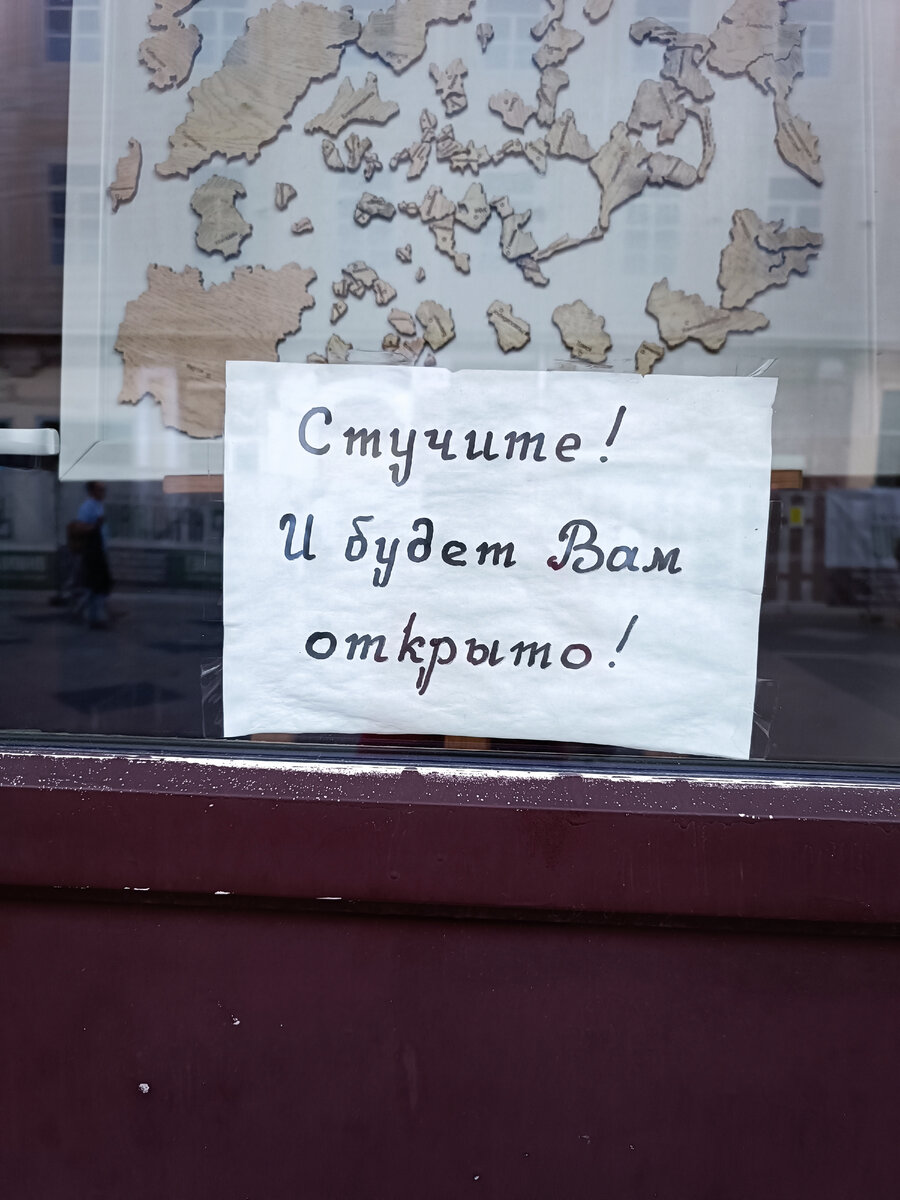 Стучите!
И будет Вам
открыто!